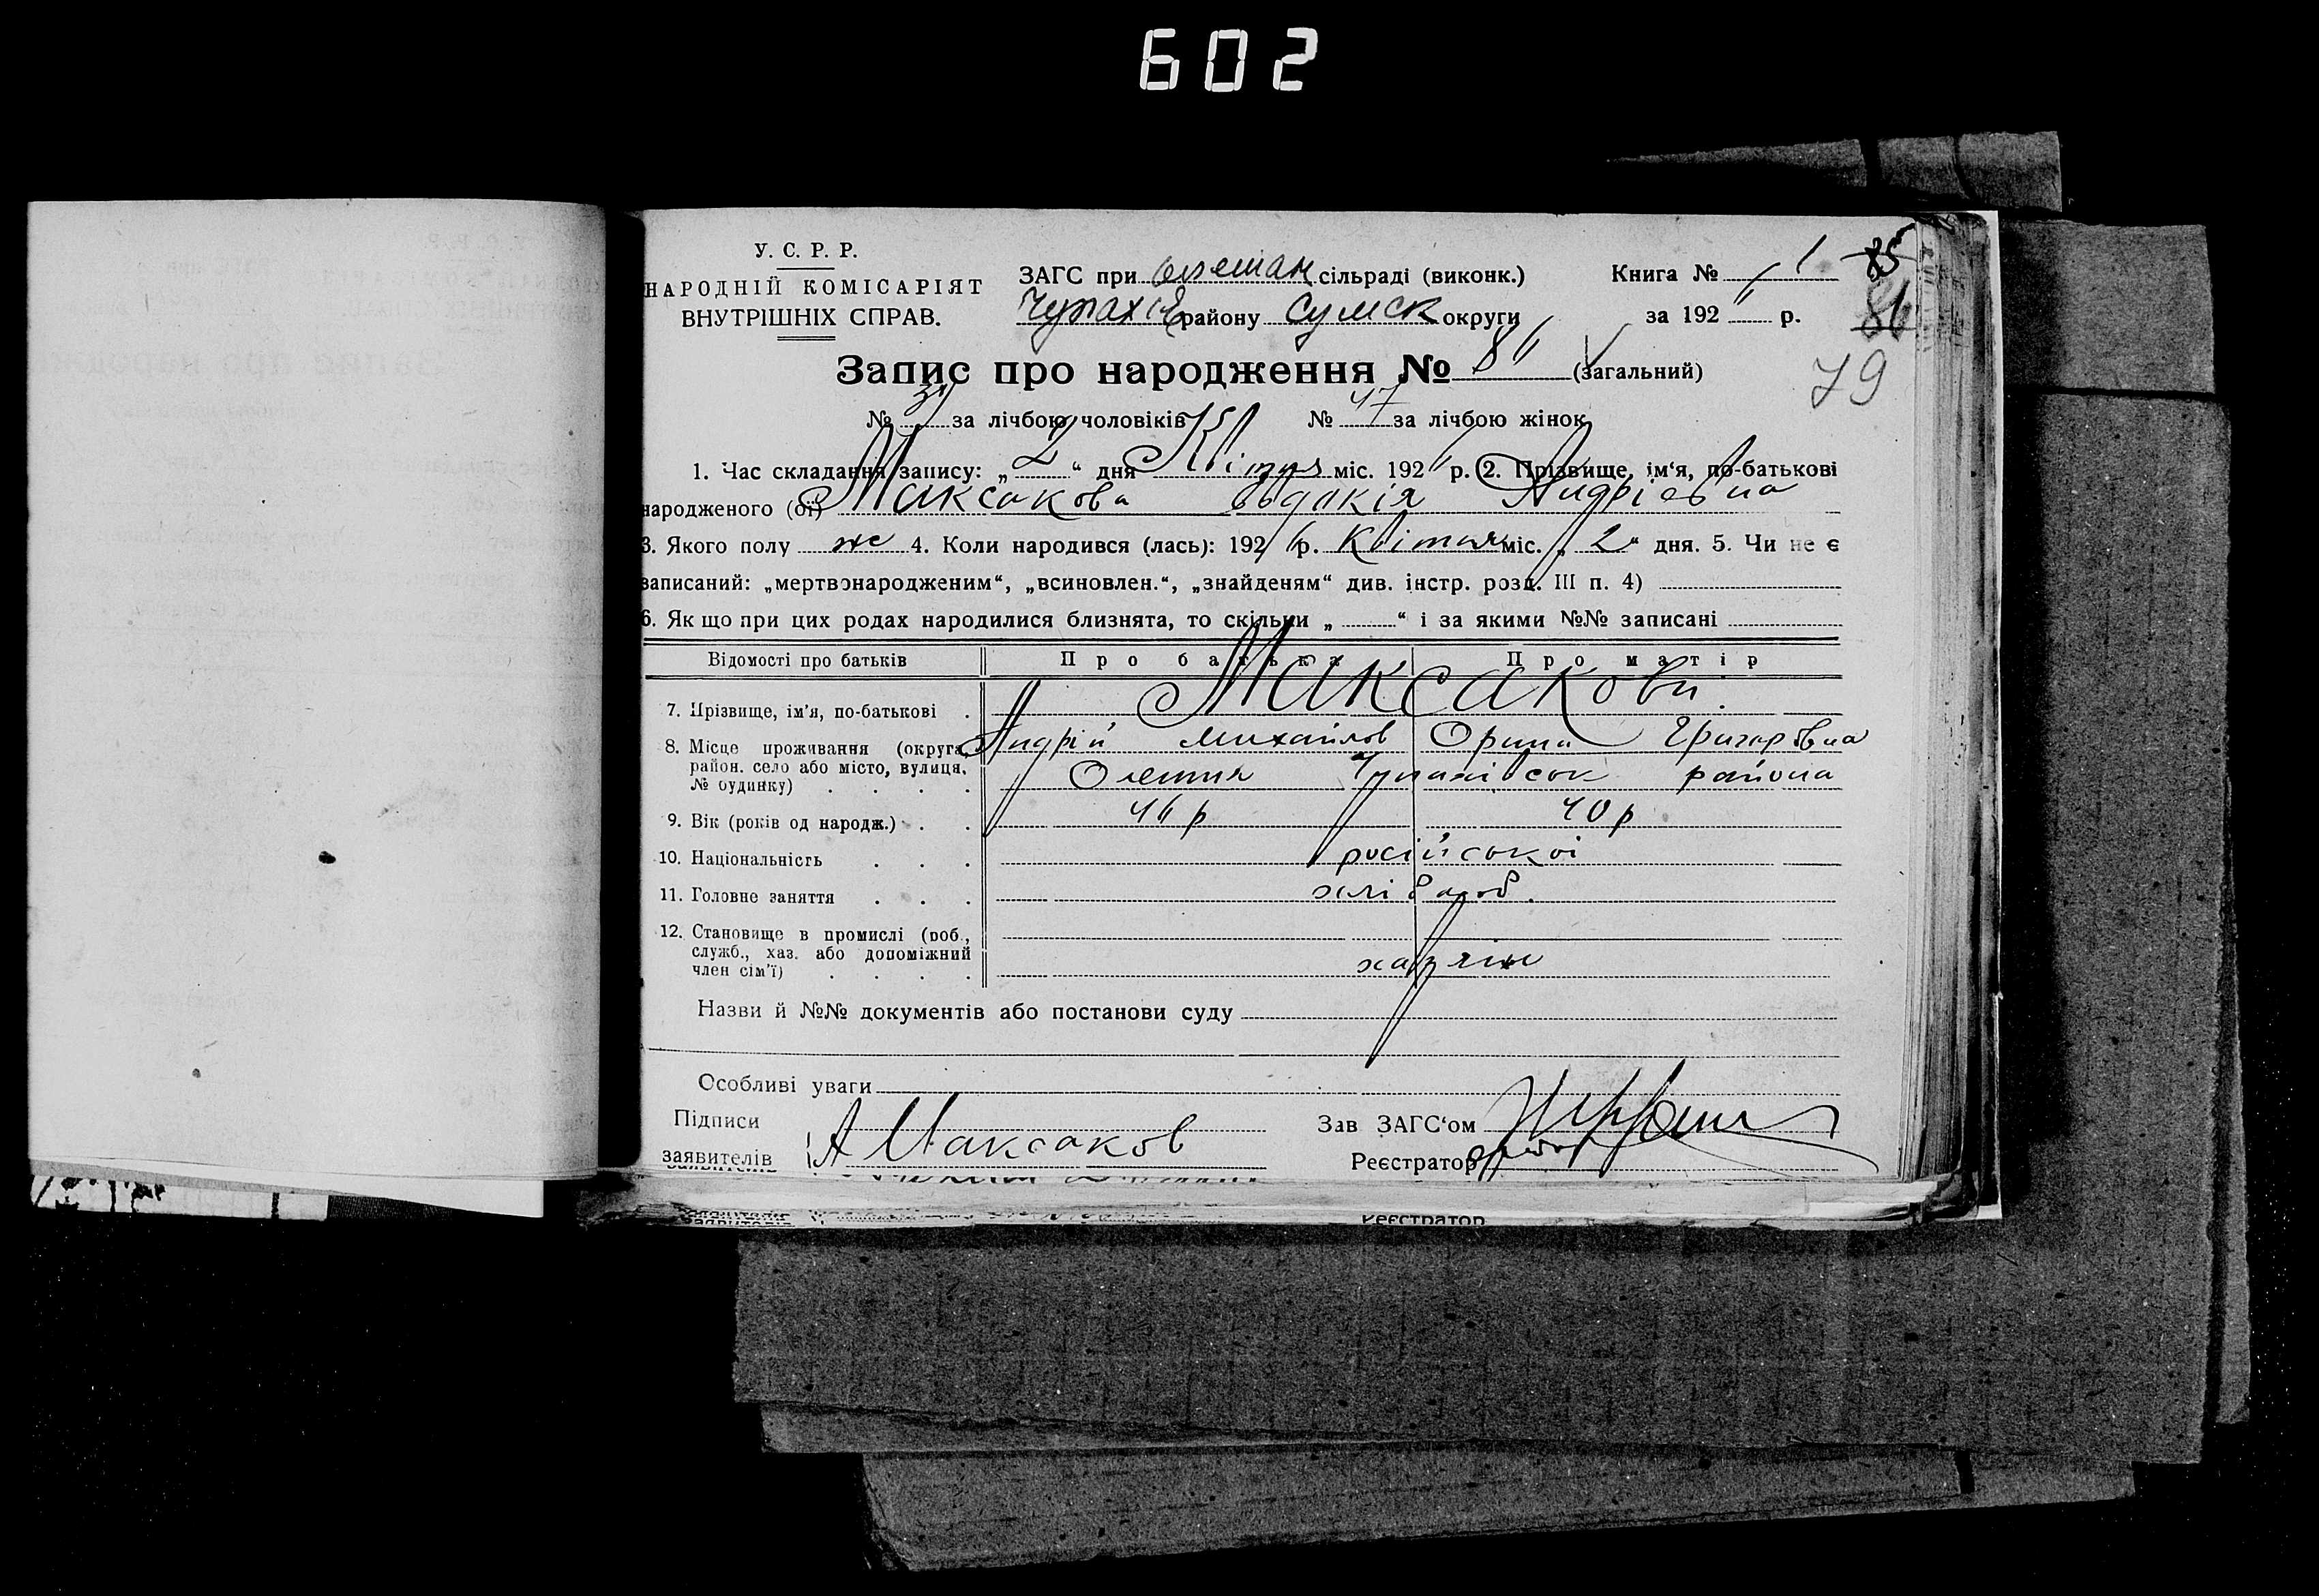 602
У. С. Р. Р.
НАРОДНІЙ КОМІСАРІЯТ
ВНУТРІШНІХ СПРАВ.
ЗАГС при олешан сільраді (виконк.)
Чупахів району Сумск округи
Книга № 1
за 192 р.
85
86
79
Запис про народження № (загальний)
№ за лічбою чоловіків № 47 за лічбою жінок
1. Час складання запису: „ 2 “ дня Квітня міс. 192 р. 2. Прізвище, ім‘я, по-батькові
народженого (ої) Максакова Євдокія Андрієвна
3. Якого полу же 4. Коли народився (лась): 192 р. Квітня міс. „ 2 “ дня. 5. Чи не є
записаний: „мертвонародженим“, „всиновлен.“, „знайденям“ див. інстр. розд. III п. 4)
6. Як що при цих родах народилися близнята, то скільки „ “ і за якими №№ записані
Відомості про батьків Про батька Про матір
7. Прізвище, ім'я, по-батькові . Максакови
Андрій Михайлов Орина Григоровна
8. Місце проживання (округа, район. село або місто, вулиця, № будинку) . . . . Олешня Чупахівськ района
9. Вік (років од народж.) . . р 40 р
10. Національність . . . російської
11. Головне заняття . . . хлібороб.
12. Становище в промислі (роб., служб., хаз. або допоміжний член сім'ї) . . . . хазяїн
Назви й №№ документів або постанови суду
Особливі уваги
Підписи
заявителів А Максаков
Зав ЗАГС‘ом
Реєстратор
Реєстратор